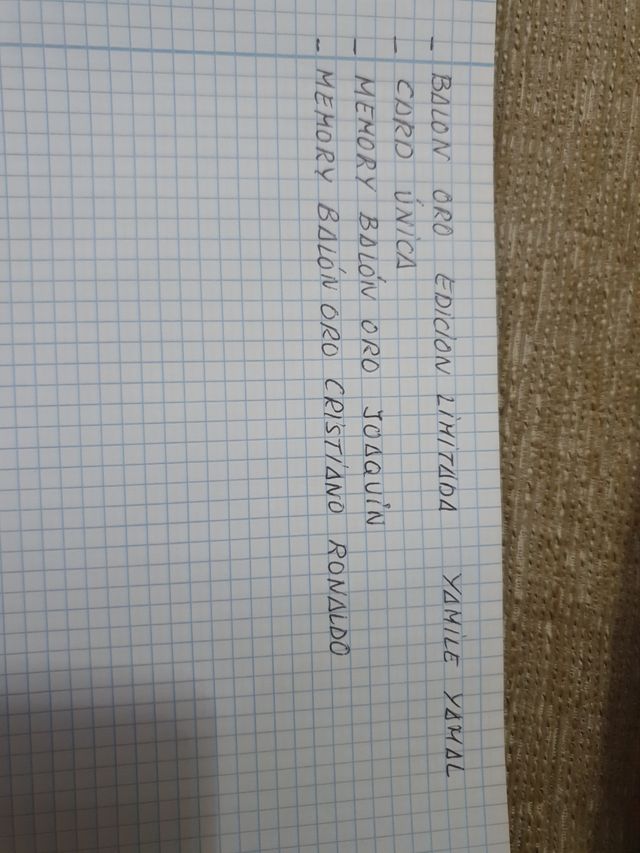 - BALON ORO EDICION LIMITADA YAMILE YAMAL
- CARD ÚNICA
- MEMORY BALÓN ORO JOAQUÍN
- MEMORY BALÓN ORO CRISTIANO RONALDO